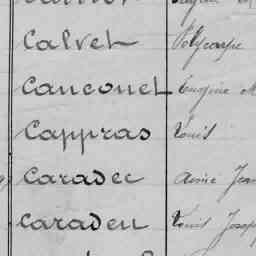 Calvet Polycarpe
Canconet Eugène M
Cappras Louis
Caradec Aimé Jean
Caraden Louis Josep